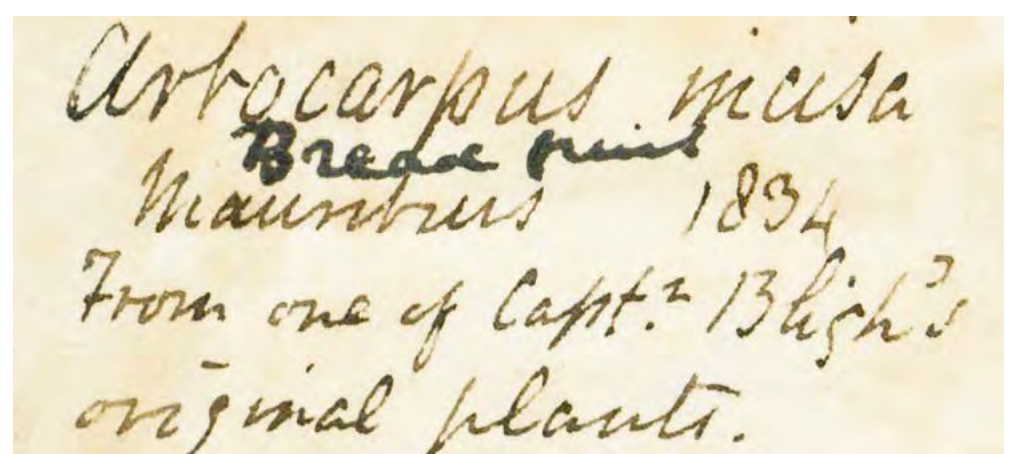 Artocarpus incisa
Bread fruit
Mauritius 1834
From one of Captn. Bligh's
original plants.